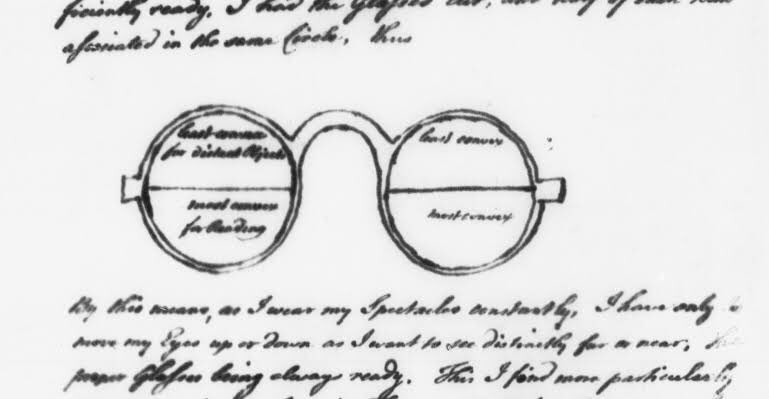 ficiently ready. I had the Glasses cut, and half of each kind
associated in the same Circle, thus
least convex
for distant Objects
least convex
most convex
for Reading
most convex
By this means, as I wear my Spectacles constantly, I have only to
move my Eyes up or down as I want to see distinctly far or near, the
proper Glasses being always ready. This I find more particularly